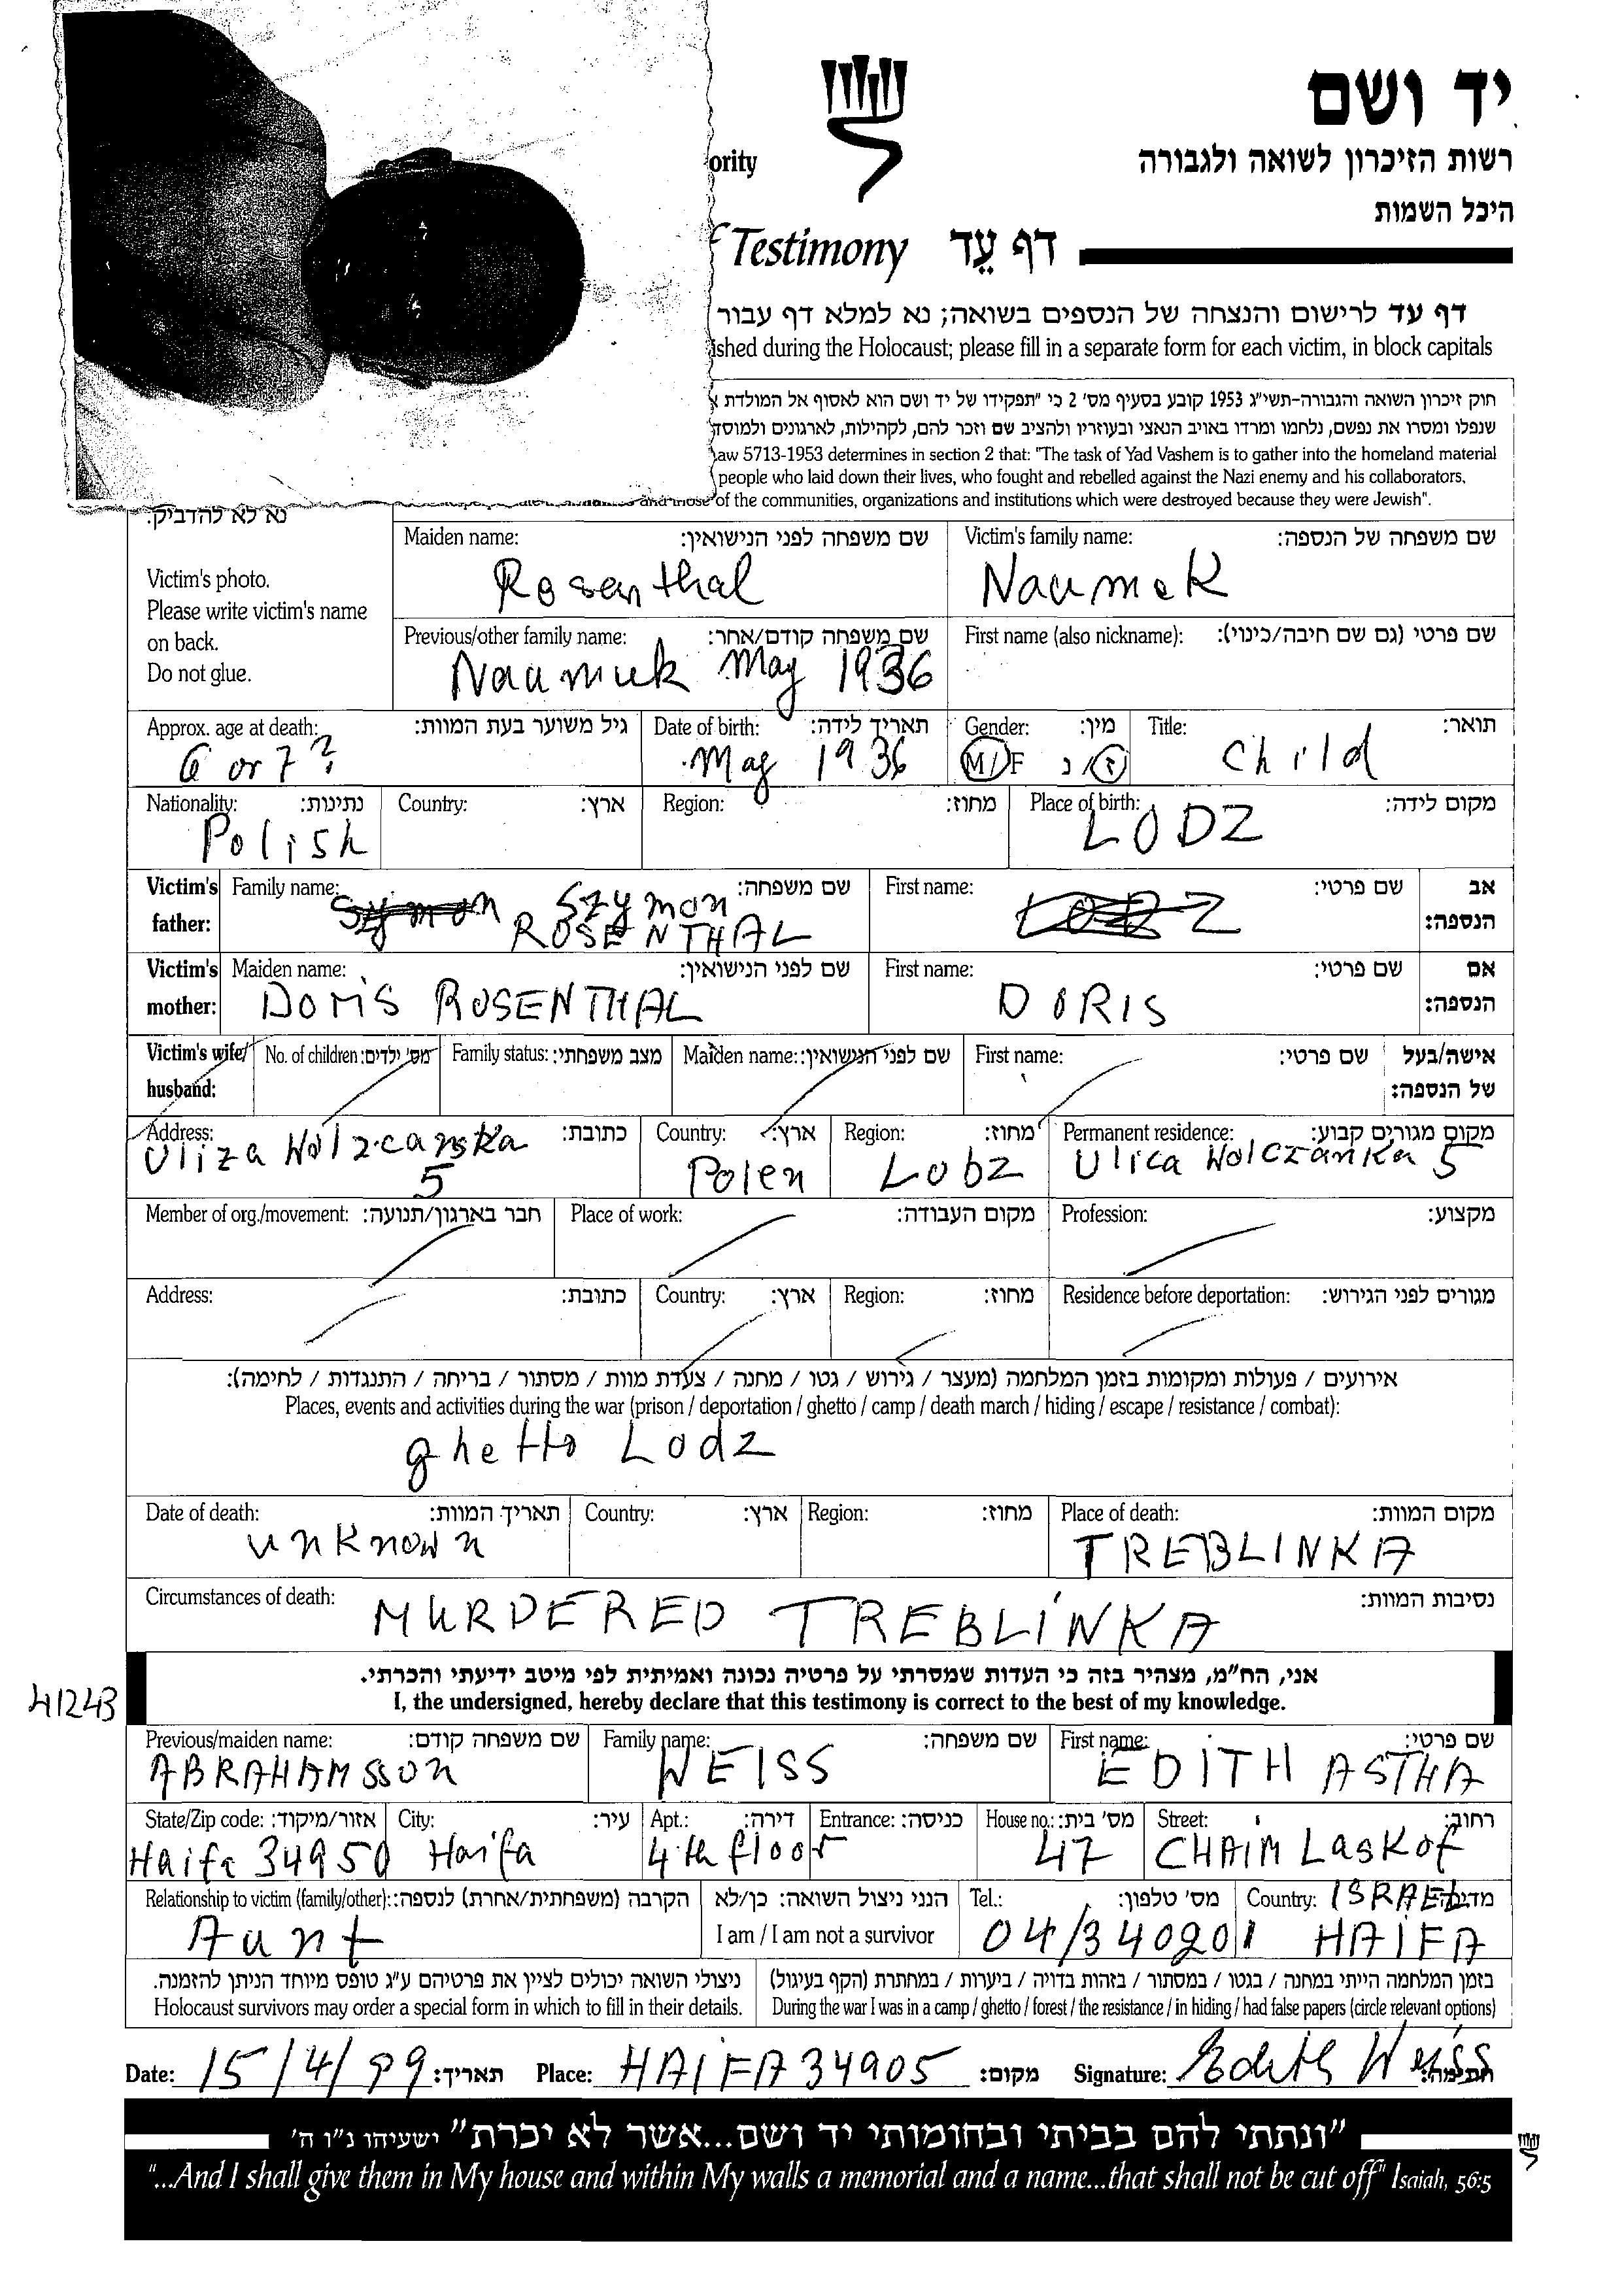 יד ושם
ority
רשות הזיכרון לשואה ולגבורה
היכל השמות
Testimony דף עֵד
דף עד לרישום והנצחה של הנספים בשואה; נא למלא דף עבור
ished during the Holocaust; please fill in a separate form for each victim, in block capitals
חוק זיכרון השואה והגבורה-תשי"ג 1953 קובע בסעיף מס' 2 כי "תפקידו של יד ושם הוא לאסוף אל המולדת
שנפלו ומסרו את נפשם, נלחמו ומרדו באויב הנאצי ובעוזריו ולהציב שם וזכר להם, לקהילות, לארגונים ולמוסד
aw 5713-1953 determines in section 2 that: "The task of Yad Vashem is to gather into the homeland material
people who laid down their lives, who fought and rebelled against the Nazi enemy and his collaborators,
and those of the communities, organizations and institutions which were destroyed because they were Jewish".
נא לא להדביק.
Victim's photo.
Please write victim's name
on back.
Do not glue.
Maiden name: שם משפחה לפני הנישואין: Victim's family name: שם משפחה של הנספה:
Rosenthal Naumek
Previous/other family name: שם משפחה קודם/אחר: First name (also nickname): שם פרטי (גם שם חיבה/כינוי):
Naumuk May 1936
Approx. age at death: גיל משוער בעת המוות: Date of birth: תאריך לידה: Gender: מין: Title: תואר:
6 or 7? May 1936 M/F ז/נ Child
Nationality: נתינות: Country: ארץ: Region: מחוז: Place of birth: מקום לידה:
Polish LODZ
Victim's father: Family name: שם משפחה: First name: שם פרטי: אב הנספה:
Szymon
ROSENTHAL
Victim's mother: Maiden name: שם לפני הנישואין: First name: שם פרטי: אם הנספה:
DORIS ROSENTHAL DORIS
Victim's wife/ husband: No. of children: מס' ילדים: Family status: מצב משפחתי: Maiden name: שם לפני הנישואין: First name: שם פרטי: אישה/בעל של הנספה:
Address: כתובת: Country: ארץ: Region: מחוז: Permanent residence: מקום מגורים קבוע:
Uliza Wolzcanska 5 Polen Lodz Ulica Wolczanka 5
Member of org./movement: חבר בארגון/תנועה: Place of work: מקום העבודה: Profession: מקצוע:
Address: כתובת: Country: ארץ: Region: מחוז: Residence before deportation: מגורים לפני הגירוש:
אירועים / פעולות ומקומות בזמן המלחמה (מעצר / גירוש / גטו / מחנה / צעדת מוות / מסתור / בריחה / התנגדות / לחימה):
Places, events and activities during the war (prison / deportation / ghetto / camp / death march / hiding / escape / resistance / combat):
ghetto Lodz
Date of death: תאריך המוות: Country: ארץ: Region: מחוז: Place of death: מקום המוות:
unknown TREBLINKA
Circumstances of death: נסיבות המוות:
MURDERED TREBLINKA
אני, הח"מ, מצהיר בזה כי העדות שמסרתי על פרטיה נכונה ואמיתית לפי מיטב ידיעתי והכרתי.
I, the undersigned, hereby declare that this testimony is correct to the best of my knowledge.
41243
Previous/maiden name: שם משפחה קודם: Family name: שם משפחה: First name: שם פרטי:
ABRAHAMSSON WEISS EDITH ASTHA
State/Zip code: אזור/מיקוד: City: עיר: Apt.: דירה: Entrance: כניסה: House no.: מס' בית: Street: רחוב:
Haifa 34950 Haifa 4th floor 47 CHAIM LASKOF
Relationship to victim (family/other): הקרבה (משפחתית/אחרת) לנספה: הנני ניצול השואה: כן/לא Tel.: מס' טלפון: Country: ISRAEL מדינה:
Aunt I am / I am not a survivor 04/340201 HAIFA
ניצולי השואה יכולים לציין את פרטיהם ע"ג טופס מיוחד הניתן להזמנה. בזמן המלחמה הייתי במחנה / בגטו / במסתור / בזהות בדויה / ביערות / במחתרת (הקף בעיגול)
Holocaust survivors may order a special form in which to fill in their details. During the war I was in a camp / ghetto / forest / the resistance / in hiding / had false papers (circle relevant options)
Date: 15/4/99 תאריך: Place: HAIFA 34905 מקום: Signature: Edith Weiss חתימה:
"ונתתי להם בביתי ובחומותי יד ושם...אשר לא יכרת" ישעיהו נ"ו ה'
"...And I shall give them in My house and within My walls a memorial and a name...that shall not be cut off" Isaiah, 56:5